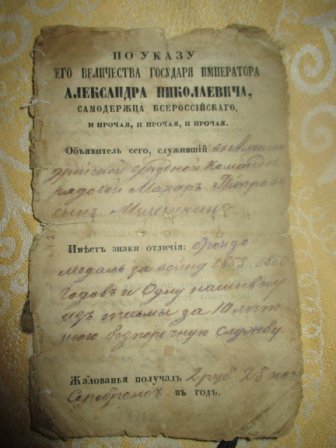 ПО УКАЗУ
ЕГО ВЕЛИЧЕСТВА ГОСУДАРЯ ИМПЕРАТОРА
АЛЕКСАНДРА НИКОЛАЕВИЧА,
САМОДЕРЖЦА ВСЕРОССІЙСКАГО,
И ПРОЧАЯ, И ПРОЧАЯ, И ПРОЧАЯ.
Объявитель сего, служившій
рядовой Макаръ Петровъ
сынъ
Имѣетъ знаки отличія: бронзо
медаль за войну 1853
годовъ и Одну нашивку
изъ тесьмы за 10 лѣт
нюю безпорочную службу
Жалованья получалъ 2 руб 25 коп
Серебромъ въ годъ.